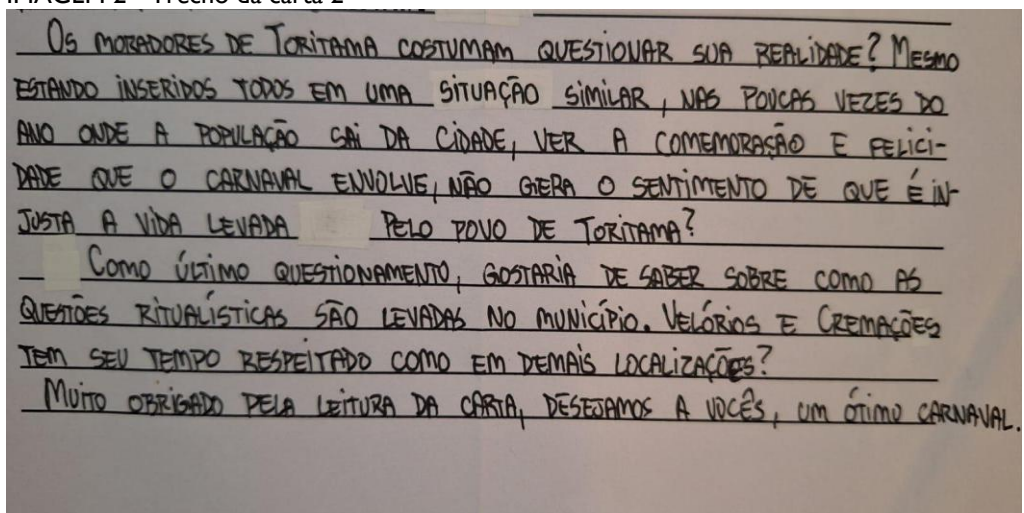 IMAGEM 2 - Trecho da carta 2
Os MORADORES DE TORITAMA COSTUMAM QUESTIONAR SUA REALIDADE? MESMO
ESTANDO INSERIDOS TODOS EM UMA SITUAÇÃO SIMILAR, NAS POUCAS VEZES DO
ANO ONDE A POPULAÇÃO SAI DA CIDADE, VER A COMEMORAÇÃO E FELICI-
DADE QUE O CARNAVAL ENVOLVE, NÃO GERA O SENTIMENTO DE QUE É IN-
JUSTA A VIDA LEVADA PELO POVO DE TORITAMA?
COMO ÚLTIMO QUESTIONAMENTO, GOSTARIA DE SABER SOBRE COMO AS
QUESTÕES RITUALÍSTICAS SÃO LEVADAS NO MUNICÍPIO. VELÓRIOS E CREMAÇÕES
TEM SEU TEMPO RESPEITADO COMO EM DEMAIS LOCALIZAÇÕES?
MUITO OBRIGADO PELA LEITURA DA CARTA, DESEJAMOS A VOCÊS, UM ÓTIMO CARNAVAL.